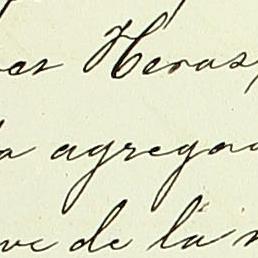 es Heras,
la agrega
ve de la